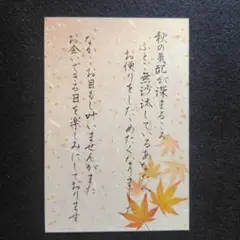 秋の気配が深まるころ
ふとご無沙汰しているあなたへ
お便りをしたためたくなりました
なかなかお目もじ叶いませんがまた
お会いできる日を楽しみにしております